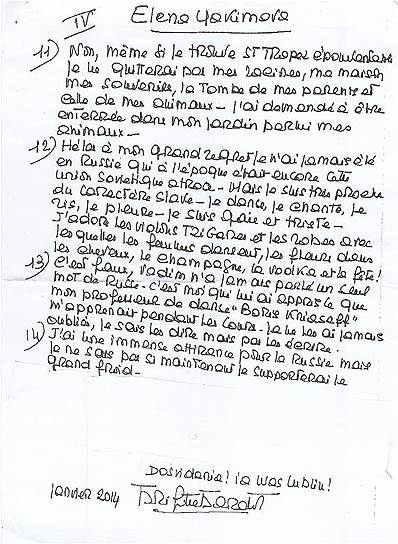 IV Elena Yakimova
11) Non, même si je trouve St Tropez épouvantable
je ne quitterai pas mes racines, ma maison
mes souvenirs, la tombe de mes parents et
celle de mes animaux - j'ai demandé à être
enterrée dans mon jardin parmi mes
animaux -
12) Hélas à mon grand regret je n'ai jamais été
en Russie qui à l'époque était encore cette
union soviétique atroce - Mais je suis très proche
du caractère slave - Je danse, je chante, je
ris, je pleure - je suis gaie et triste -
J'adore les violons TZIGANES et les robes avec
lesquelles les femmes dansent, les fleurs dans
les cheveux, le champagne, la vodka et la fête!
13) C'est faux, Vadim n'a jamais parlé un seul
mot de Russe - c'est moi qui lui ai appris ce que
mon professeur de danse "Boris Kniaseff"
m'apprenait pendant les cours - Je ne les ai jamais
oublié, je sais les dire mais pas les écrire -
14) J'ai une immense attirance pour la Russie mais
je ne sais pas si maintenant je supporterai le
grand froid -
Dosvidania! ia was lublu!
Janvier 2014